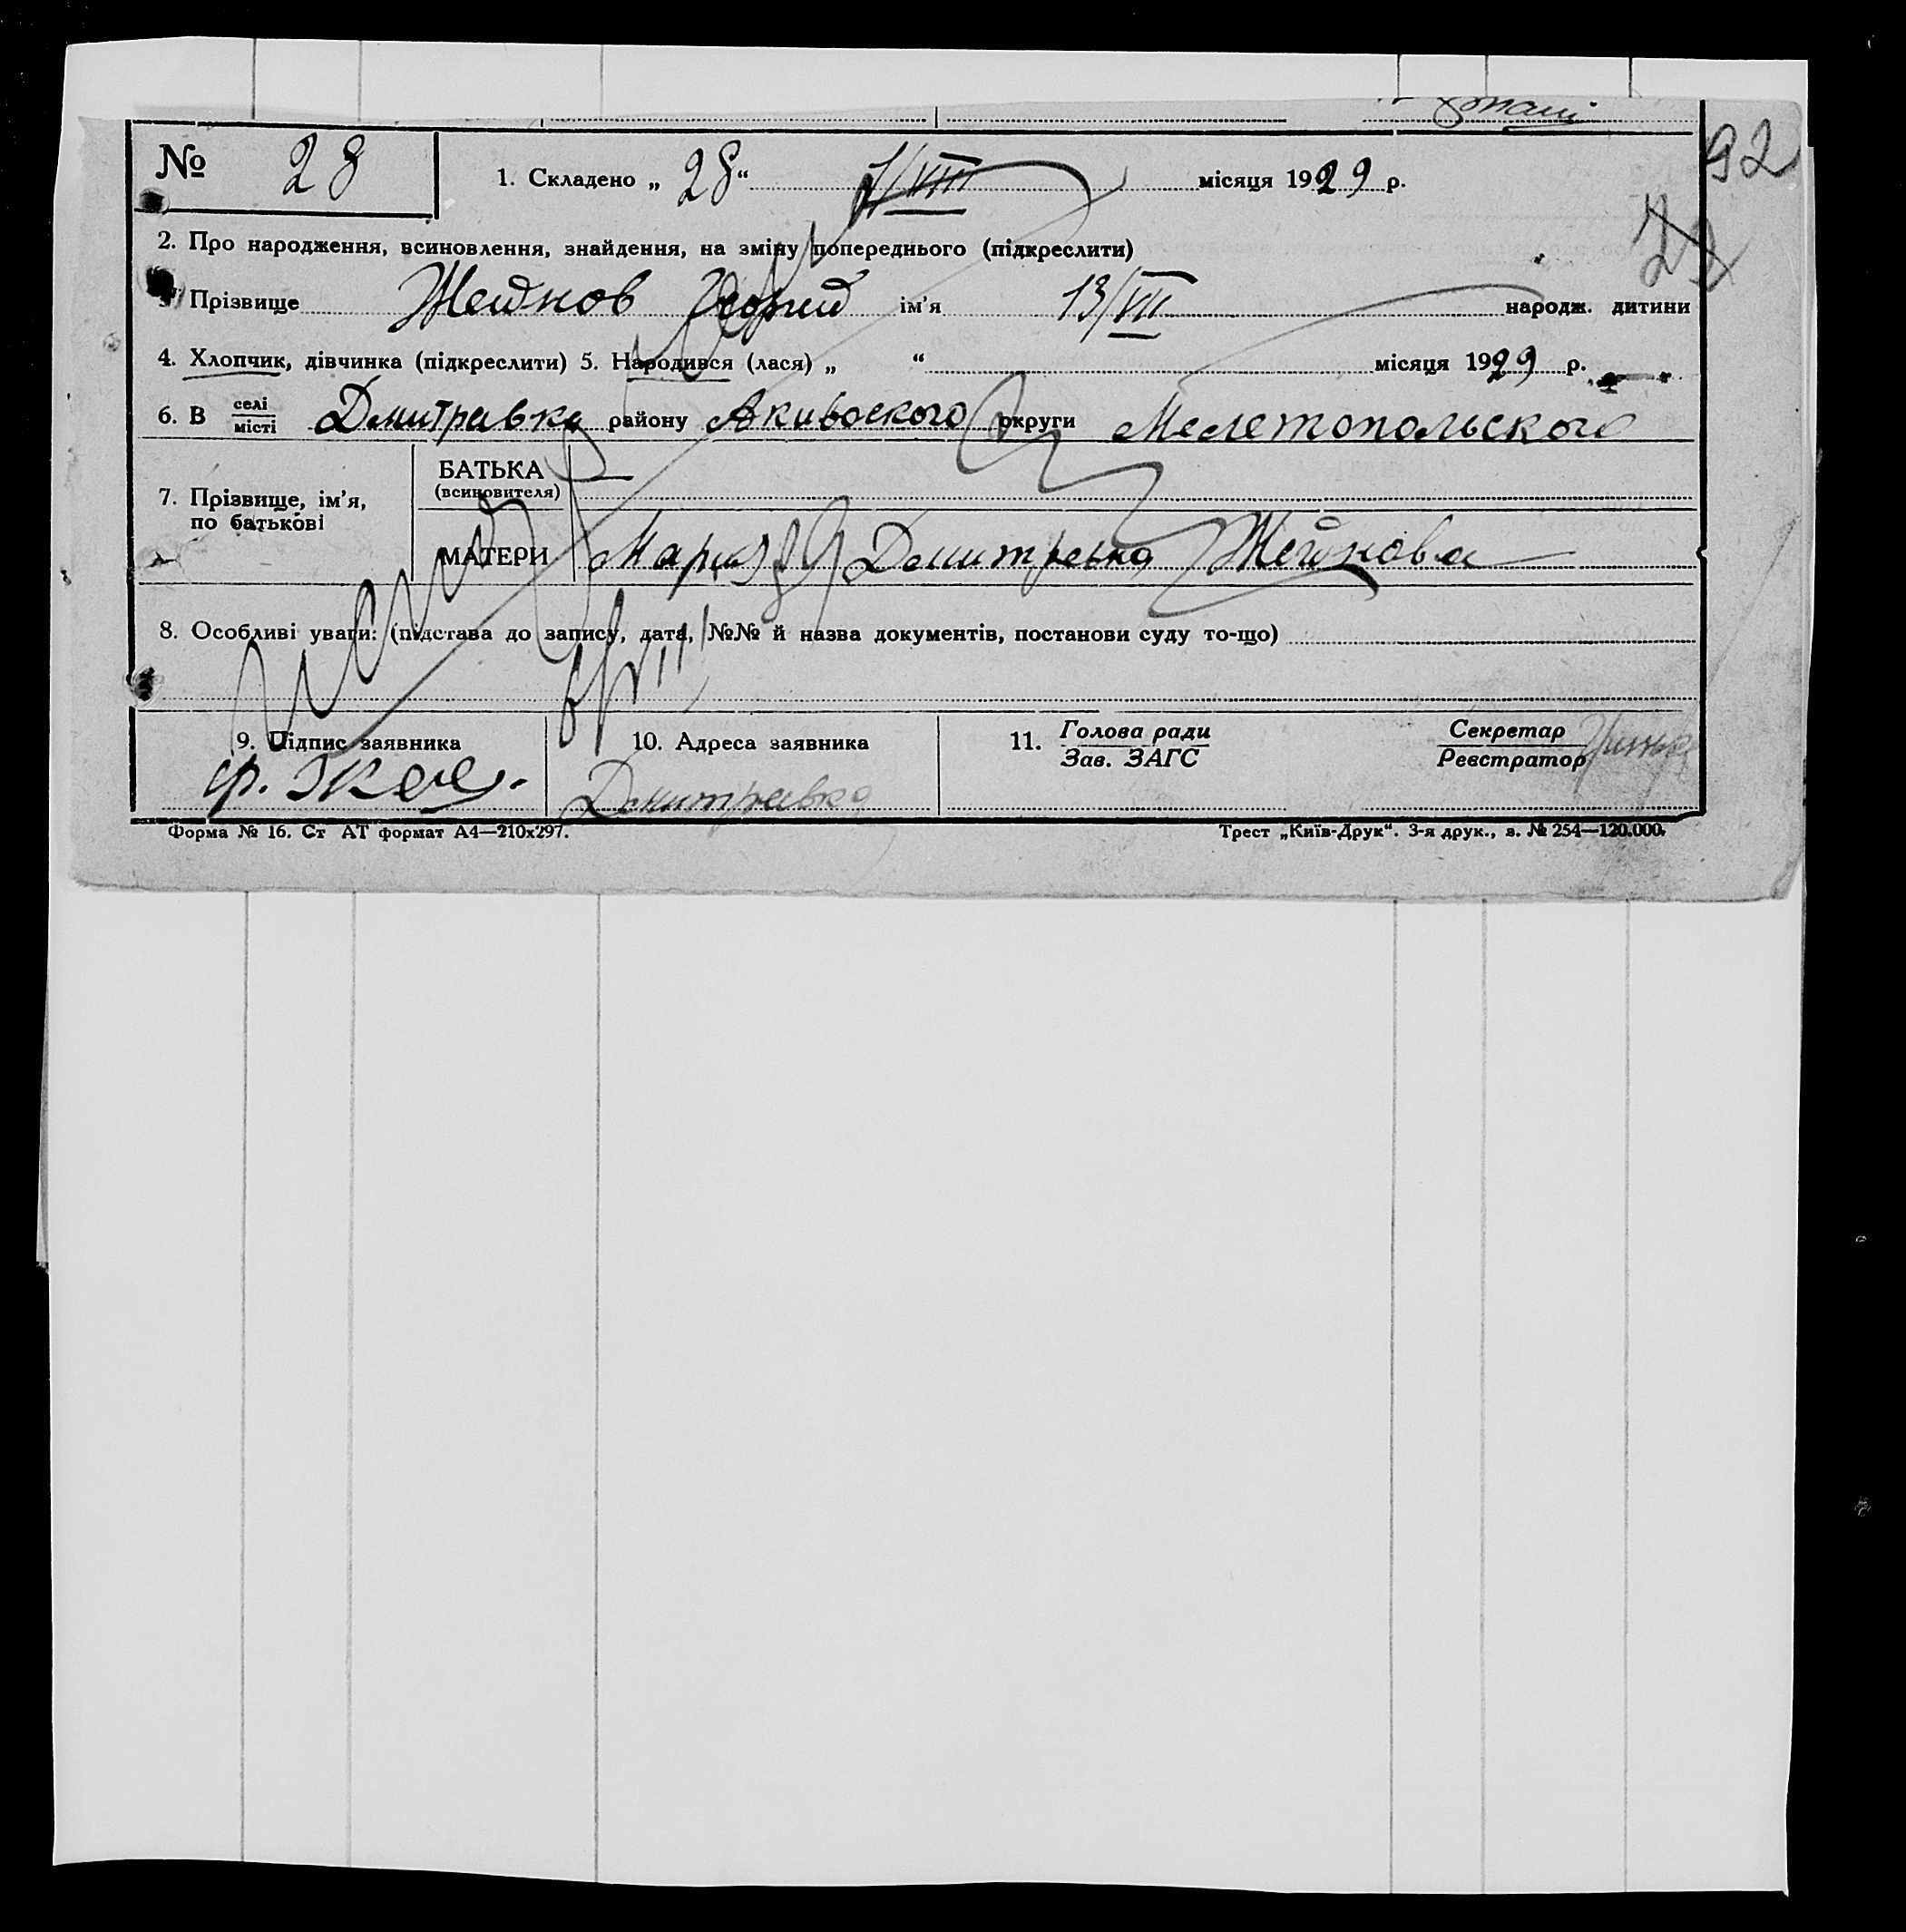 92
№ 28
1. Складено „ 28 “ 1/VIII місяця 1929 р.
2. Про народження, всиновлення, знайдення, на зміну попереднього (підкреслити)
3. Прізвище Жейнов Георгий ім'я 13/VII народж. дитини
4. Хлопчик, дівчинка (підкреслити) 5. Народився (лася) „ “ місяця 1929 р.
6. В селі місті Дмитравка району Акивоского округи Мелетопольского
7. Прізвище, ім'я, по батькові
БАТЬКА (всиновителя) —
МАТЕРИ Мария Дмитревна Жейнова
8. Особливі уваги: (підстава до запису, дата, №№ й назва документів, постанови суду то-що)
9. Підпис заявника
10. Адреса заявника
11. Голова ради Зав. ЗАГС
Секретар Реєстратор
Дмитравка
Форма № 16. Ст АТ формат А4—210х297.
Трест „Київ-Друк“. 3-я друк., з. № 254—120.000.